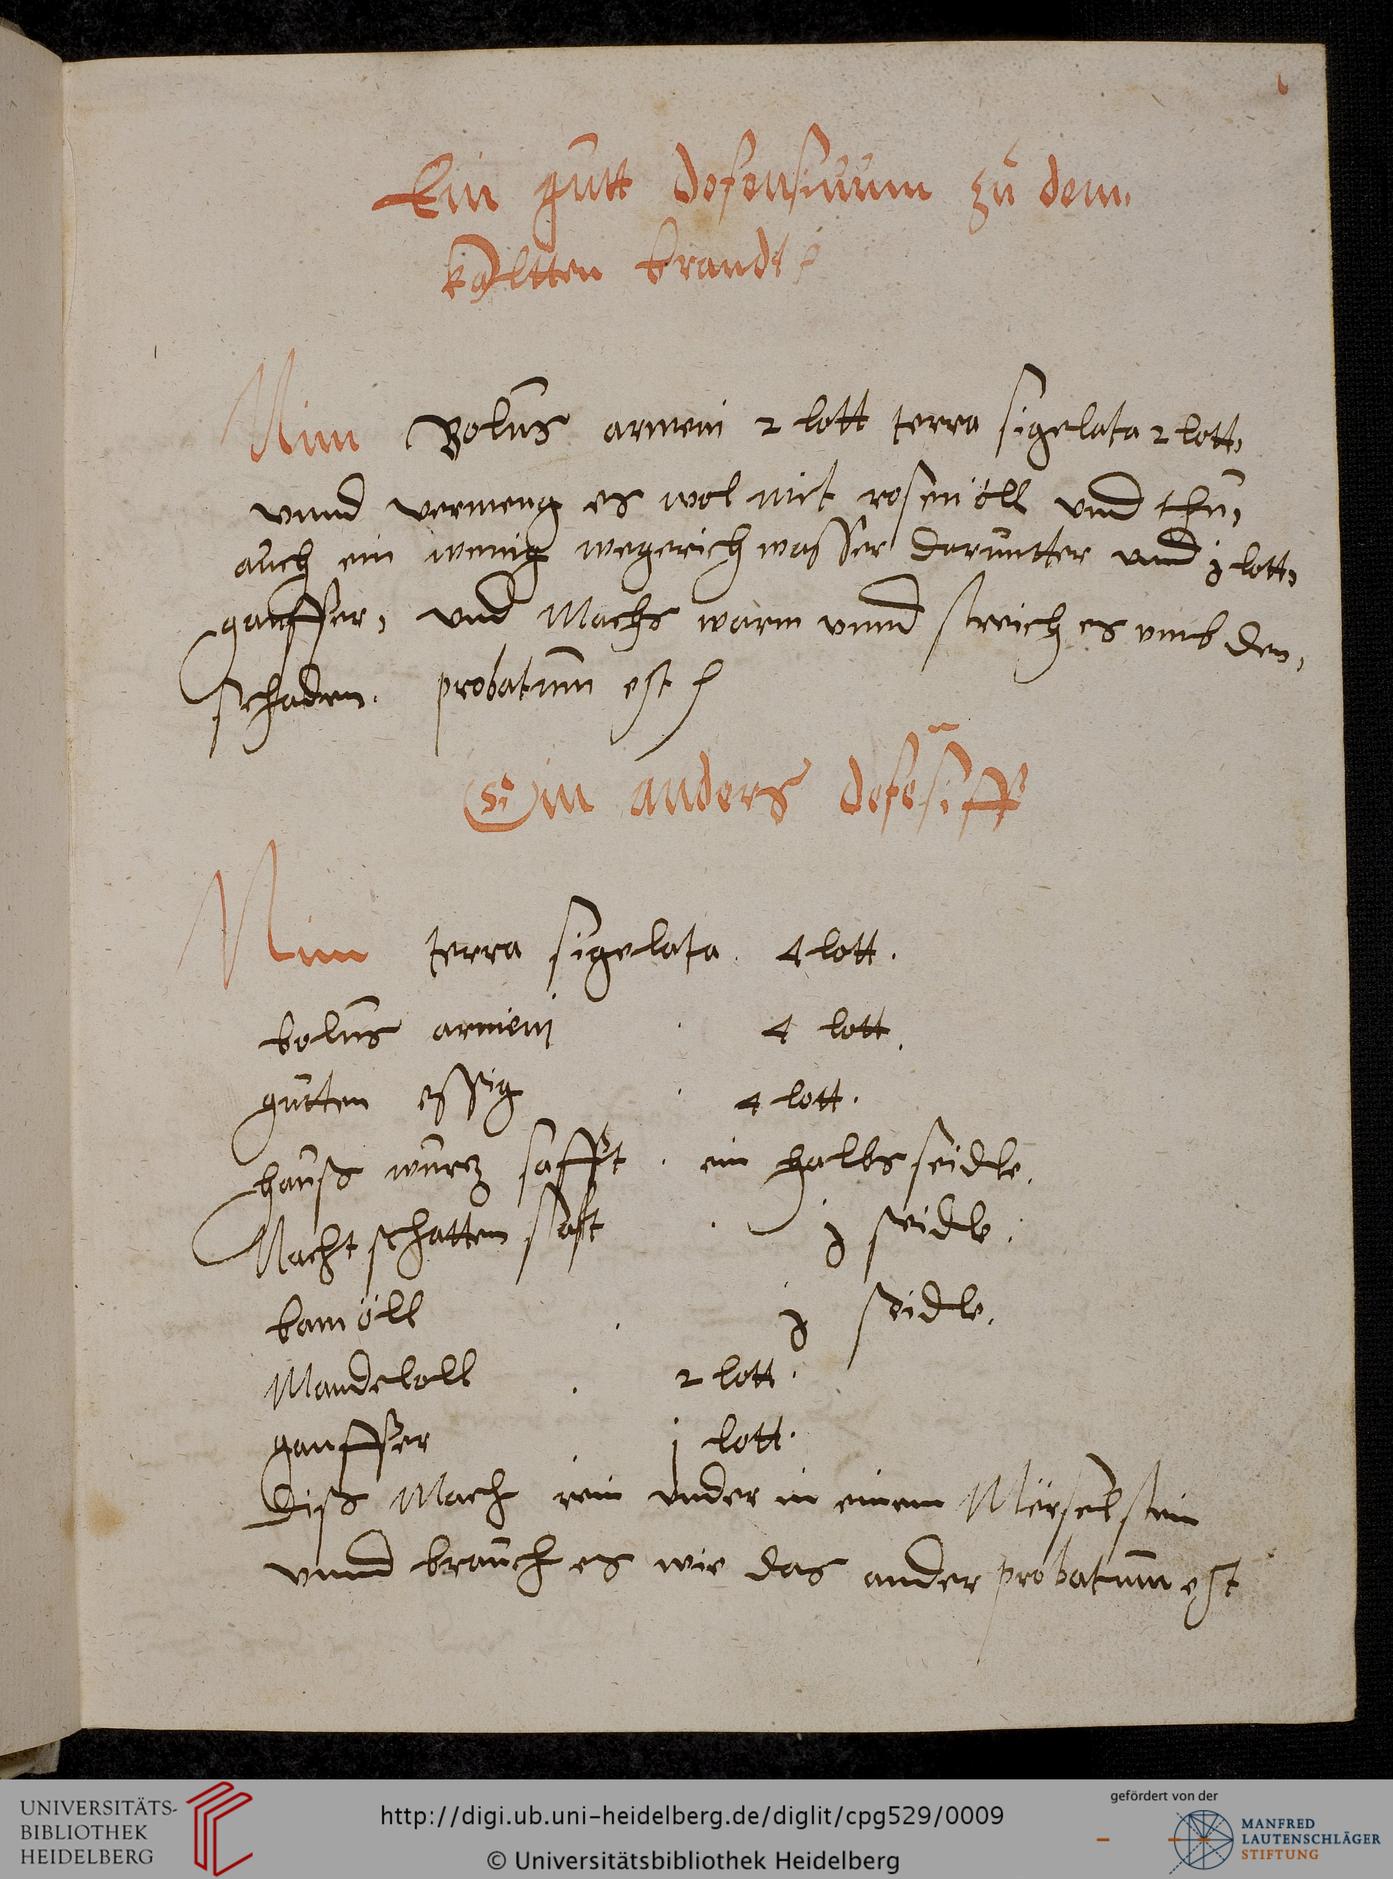 Ein gutt defensiuum zu dem
kaltten brandt
Nim Bolus armeni 2 lott terra sigelata 2 lott,
vnnd vermeng es wol mit rosen öll vnd thu,
auch ein wenig wegerich wasser daruntter vnd j lott,
gauffer, vnd Machs warm vnnd streich es vmb den,
schaden. probatum est
Ein anders defēsiff
Nim terra sigelata. 4 lott.
bolus armenj . 4 lott.
gutten essig . 4 lott.
hauß wurtz safft . ein halbs seidle.
Nacht schatten saft . j seidle.
bamöll . j seidle.
Mandeloll . 2 lott.
gauffer . j lott.
Diß Mach rein vnder in einem Mërsel stein
vnnd brauch es wie das ander probatum est
UNIVERSITÄTS-
BIBLIOTHEK
HEIDELBERG
http://digi.ub.uni-heidelberg.de/diglit/cpg529/0009
© Universitätsbibliothek Heidelberg
gefördert von der
MANFRED
LAUTENSCHLÄGER
STIFTUNG